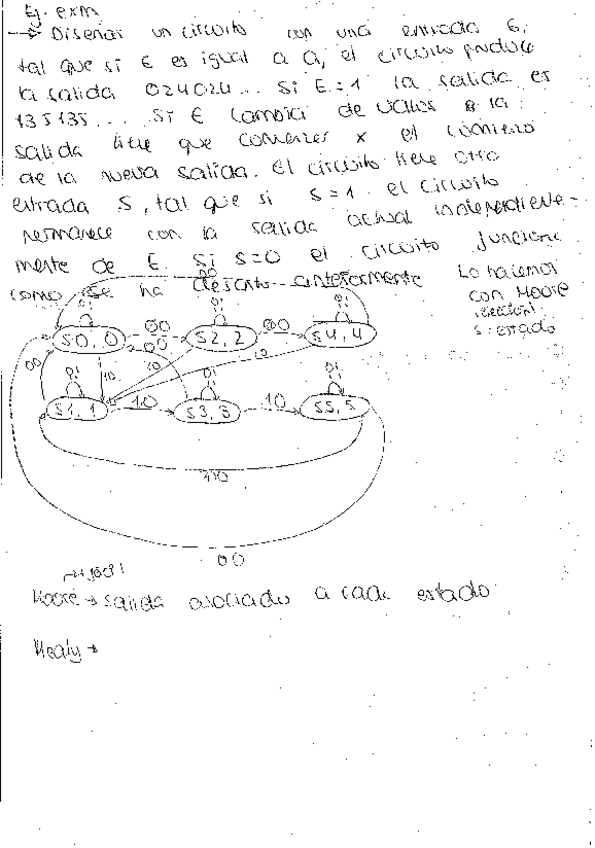 Ej. exm
→ Diseñar un circuito con una entrada E,
tal que si E es igual a 0, el circuito produce
la salida 024024... Si E=1 la salida es
135135... Si E cambia de valor la
salida tiene que comenzar x el comienzo
de la nueva salida. El circuito tiene otra
entrada S, tal que si S=1 el circuito
permanece con la salida actual independiente-
mente de E. Si S=0 el circuito funciona
como se ha descrito anteriormente
Lo hacemos
con Moore
s. estado
00
S0, 0
00
S2, 2
00
S4, 4
00
10
10
10
00
S1, 1
10
S3, 3
10
S5, 5
10
00
Moore → salida asociado a cada estado
Mealy →